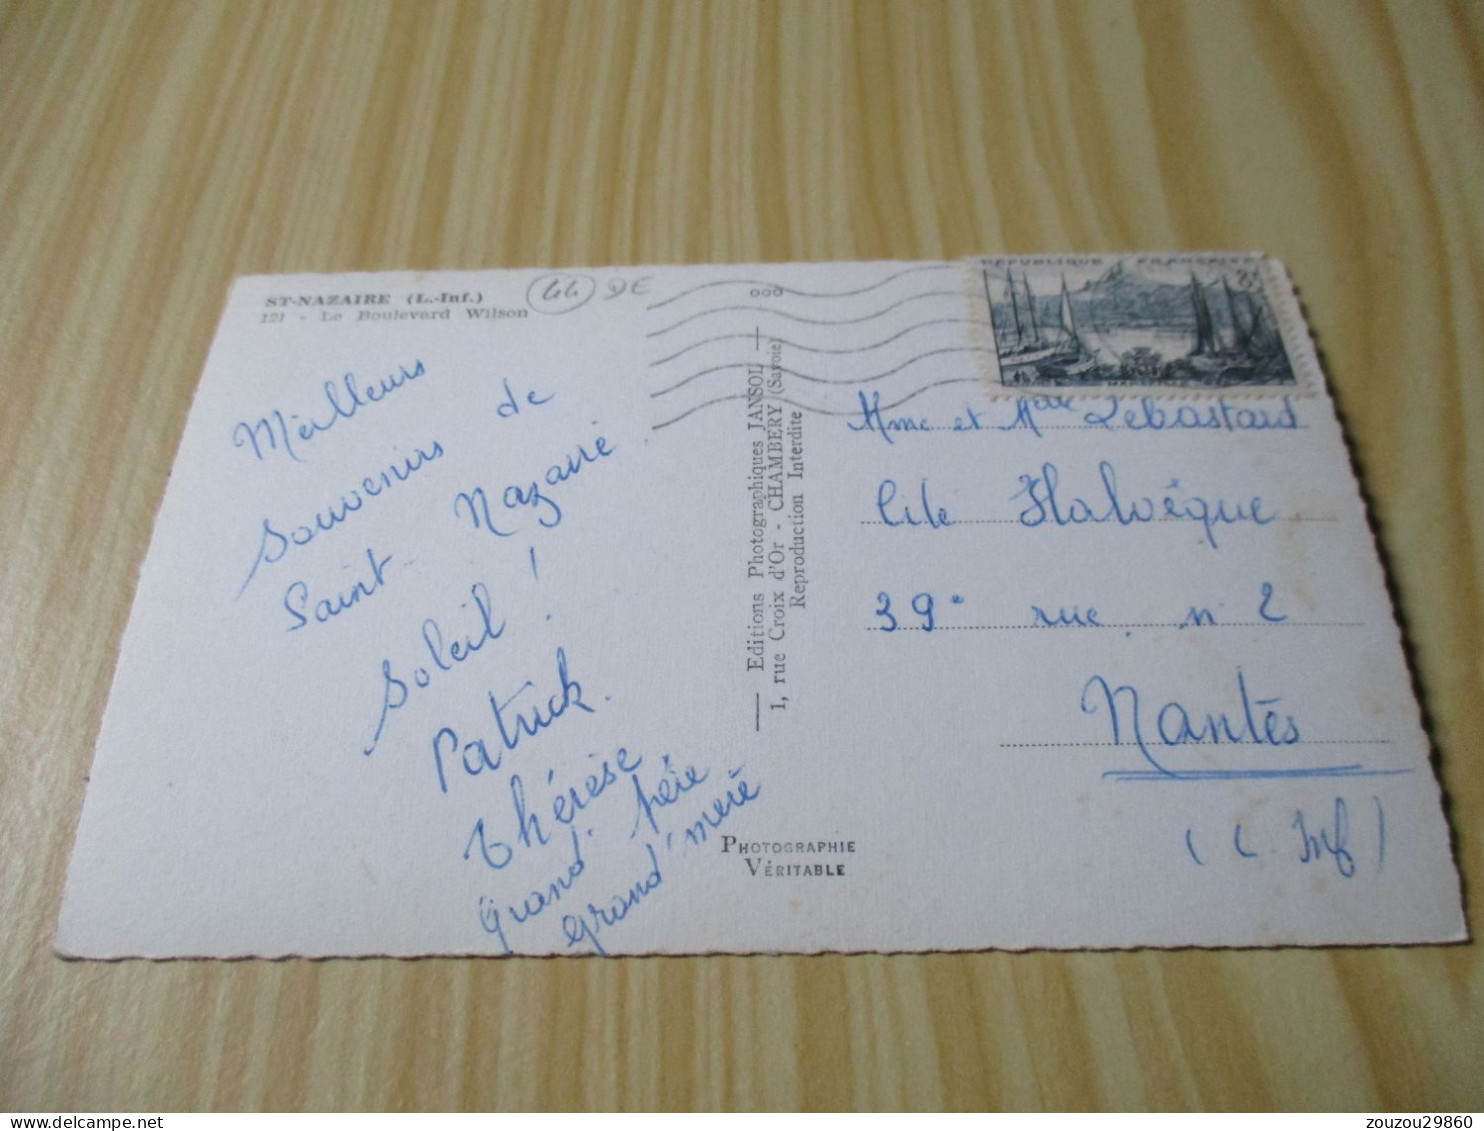 ST-NAZAIRE (L.-Inf.)
121 - Le Boulevard Wilson
44 DE
Meilleurs
souvenirs de
Saint Nazaire
Soleil !
Patrick.
Thérèse
grand' père
grand' mère
Editions Photographiques JANSOL
1, rue Croix d'Or - CHAMBERY (Savoie)
Reproduction Interdite
PHOTOGRAPHIE
VÉRITABLE
REPUBLIQUE FRANÇAISE
8f
Mme et Melle Lebastard
Cité Halvêque
39e rue n 2
Nantes
(L. Inf)
zouzou29860